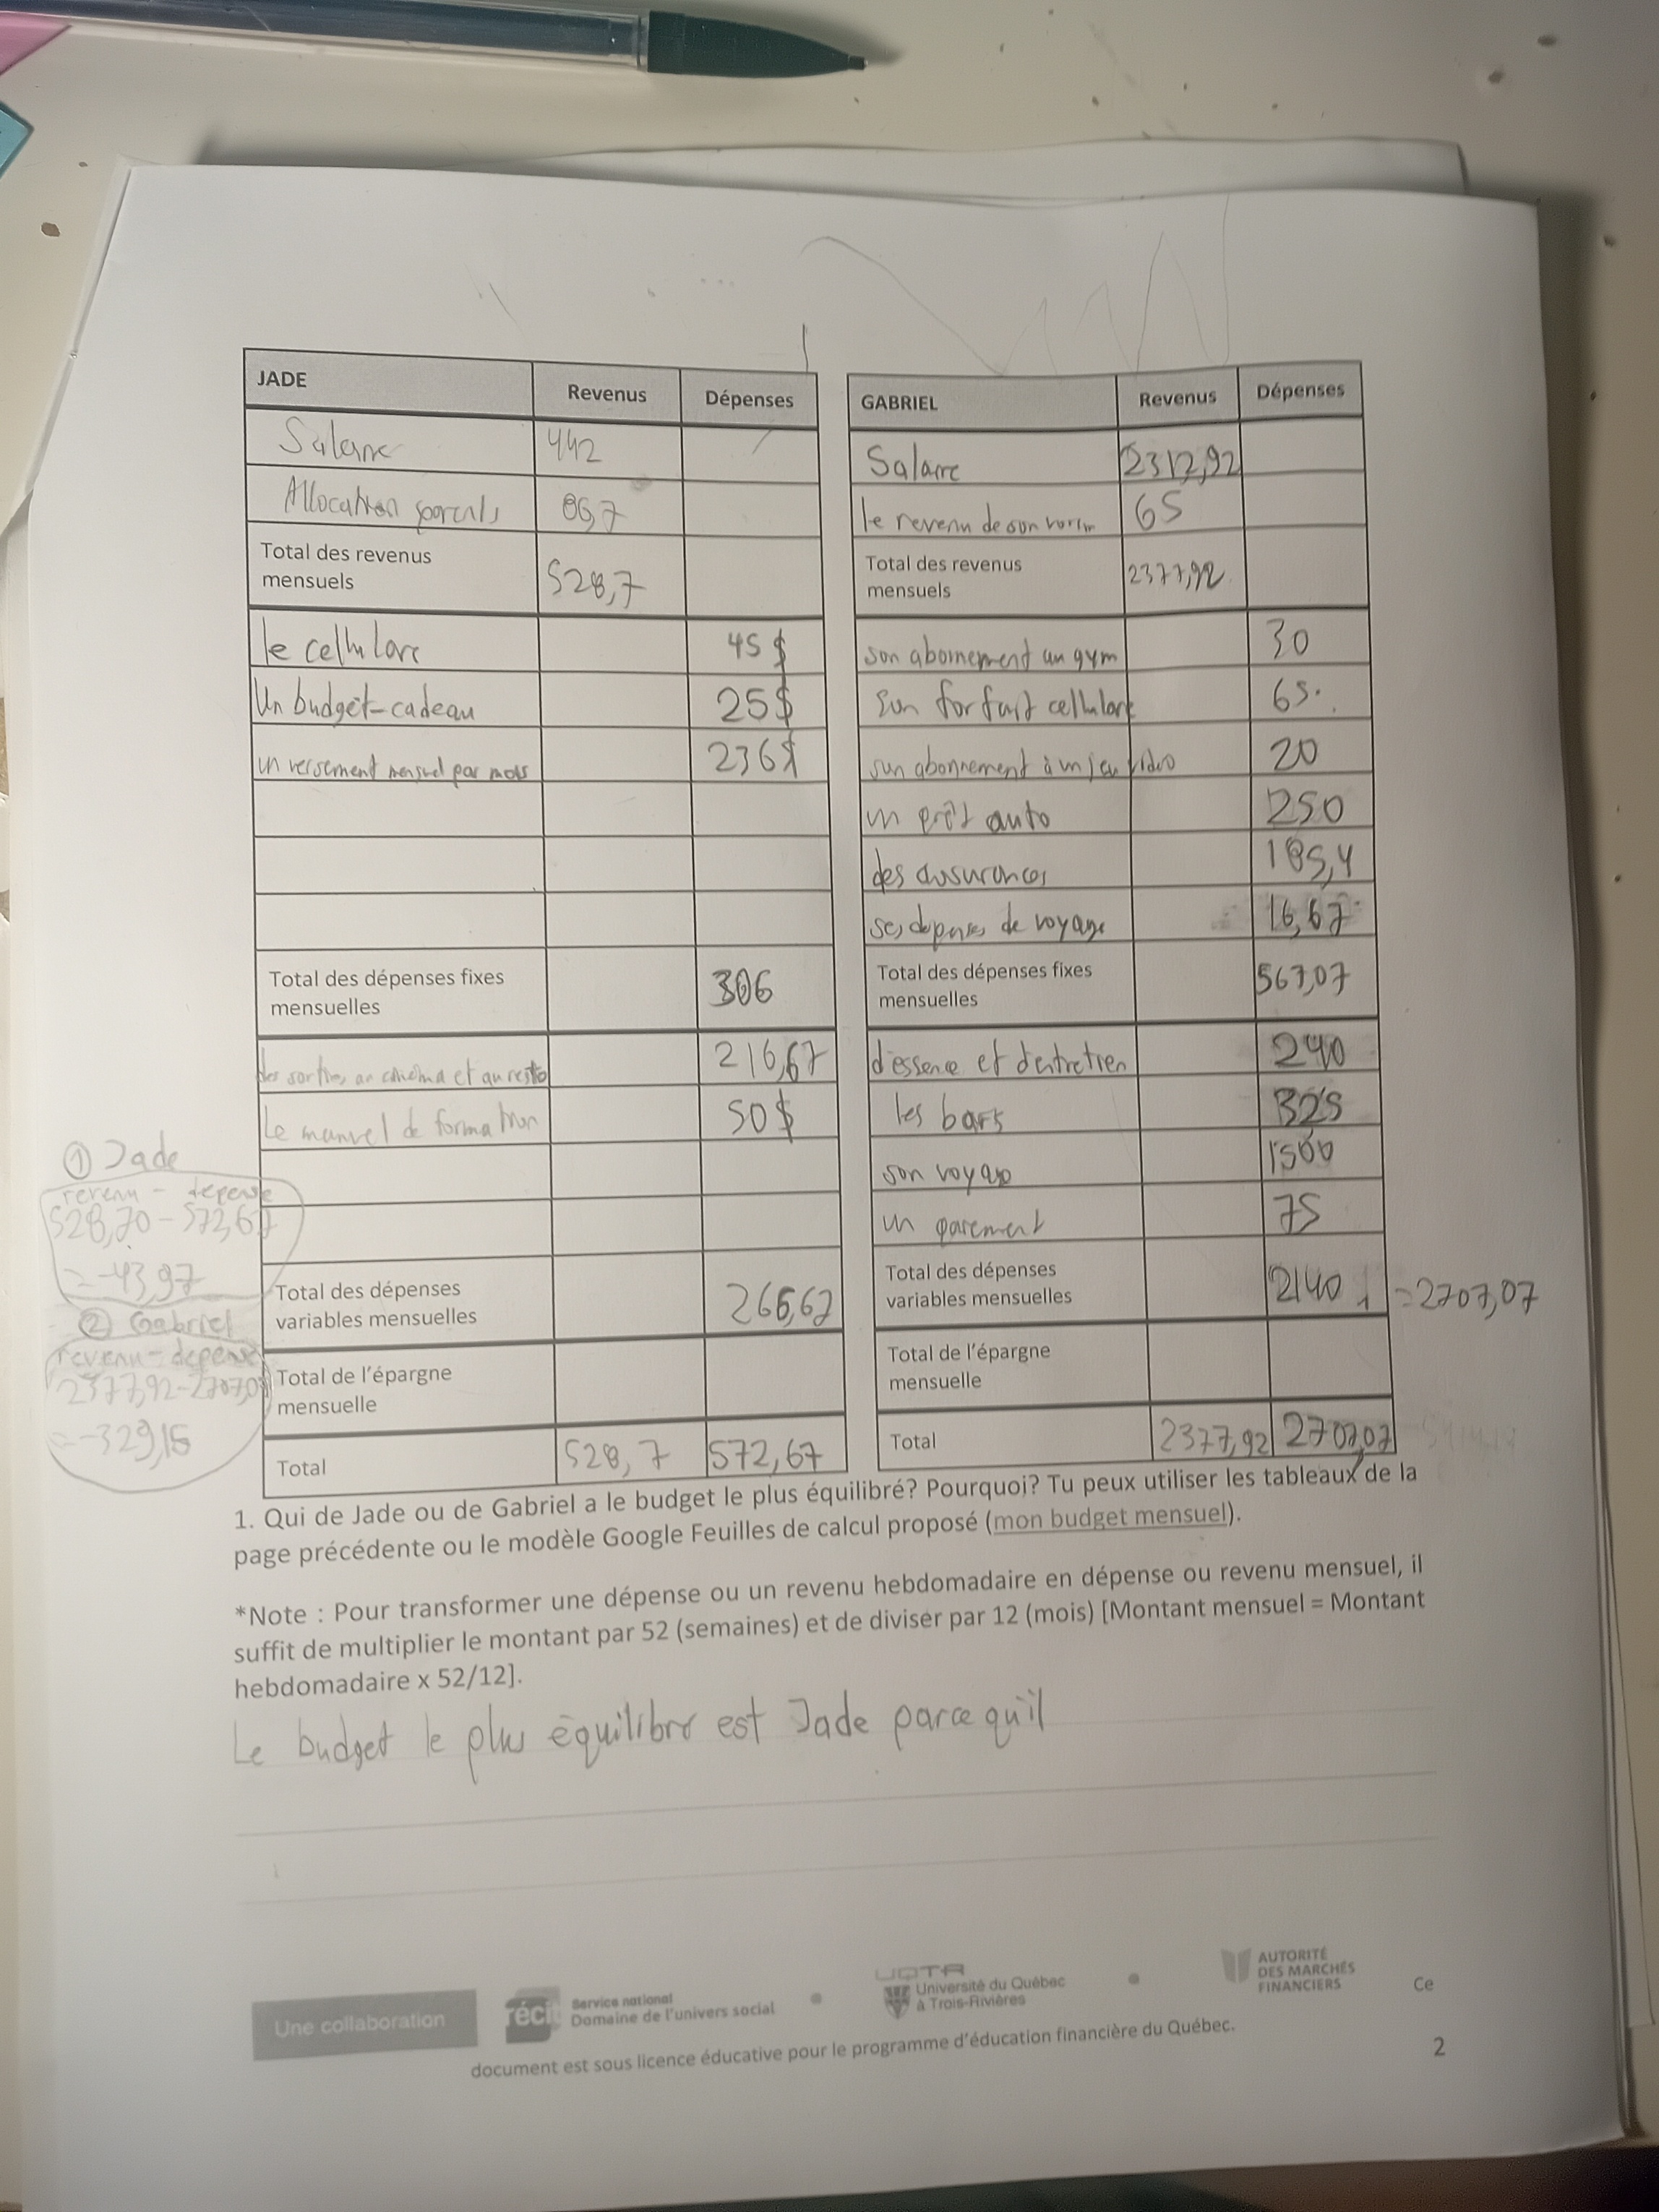 JADE Revenus Dépenses
Salaire 442
Allocation parents 86,7
Total des revenus mensuels 528,7
le cellulare 45 $
Un budget-cadeau 25$
un versement mensuel par mois 236$
Total des dépenses fixes mensuelles 306
des sorties au cinéma et au resto 216,67
Le manuel de formation 50$
Total des dépenses variables mensuelles 266,67
Total de l'épargne mensuelle
Total 528,7 572,67
GABRIEL Revenus Dépenses
Salaire 2312,92
le revenu de son 65
Total des revenus mensuels 2377,92
son abonnement au gym 30
Son forfait cellulare 65
son abonnement à un jeu vidéo 20
un prêt auto 250
des assurances 185,4
ses dépenses de voyage 16,67
Total des dépenses fixes mensuelles 567,07
d'essence et d'entretien 240
les bars 325
son voyage 1500
un 75
Total des dépenses variables mensuelles 2140 = 2707,07
Total de l'épargne mensuelle
Total 2377,92 2707,07
① Jade
revenu - depense
528,70 - 572,67
= -43,97
② Gabriel
revenu - depense
2377,92 - 2707,07
= -329,15
1. Qui de Jade ou de Gabriel a le budget le plus équilibré? Pourquoi? Tu peux utiliser les tableaux de la
page précédente ou le modèle Google Feuilles de calcul proposé (mon budget mensuel).
*Note : Pour transformer une dépense ou un revenu hebdomadaire en dépense ou revenu mensuel, il
suffit de multiplier le montant par 52 (semaines) et de diviser par 12 (mois) [Montant mensuel = Montant
hebdomadaire x 52/12].
Le budget le plus équilibre est Jade parce qu'il
Une collaboration
récit
Service national
Domaine de l'univers social
UQTR
Université du Québec
à Trois-Rivières
AUTORITÉ
DES MARCHÉS
FINANCIERS
Ce
document est sous licence éducative pour le programme d'éducation financière du Québec.
2